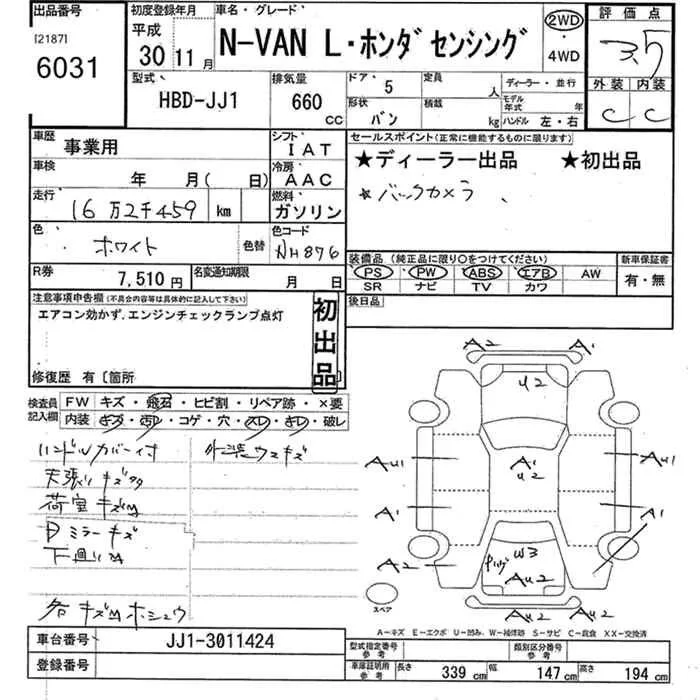 出品番号
[2187]
6031
初度登録年月
平成
30年 11月
車名・グレード
N-VAN L・ホンダセンシング
2WD
・
4WD
評価点
3.5
外装 内装
C C
型式
HBD-JJ1
排気量
660
CC
ドア 5
形状 バン
定員 人
積載 kg
ディーラー・並行
モデル年式 年
ハンドル 左・右
車歴 事業用
シフト IAT
車検 年 月( 日)
冷房 AAC
走行 16万2千459 km
燃料 ガソリン
色 ホワイト 色替
色コード NH876
R券 7,510円
名変通知期限 月 日
セールスポイント(正常に機能するものに限ります)
★ディーラー出品 ★初出品
★バックカメラ、
装備品(純正品に限り○をつけてください)
新車保証書
PS PW ABS エアB AW
SR ナビ TV カワ
有・無
後日品
注意事項申告欄(不具合内容等は具体的に記入して下さい)
エアコン効かず.エンジンチェックランプ点灯
初出品
修復歴 有〔箇所 〕
検査員記入欄
FW キズ・飛石・ヒビ割・リペア跡・×要
内装 キズ・汚レ・コゲ・穴・スレ・キレ・破レ
ハンドルカバー付 外装ウスキズ
天張り キズ
荷室 キズ凹
Dミラーキズ
下廻りサビ
各キズ凹ホシュウ
A2 A1
U2
AU1 A1 AU1
U2
A1 A1
A2 W3
AU2
AU2 AU2
スペア
A-キズ E-エクボ U-凹み、W-補修跡 S-サビ C-腐食 XX-交換済
車台番号 JJ1-3011424
登録番号
型式指定番号 参考
類別区分番号 参考
車庫証明用 参考
長さ 339 cm 幅 147 cm 高さ 194 cm